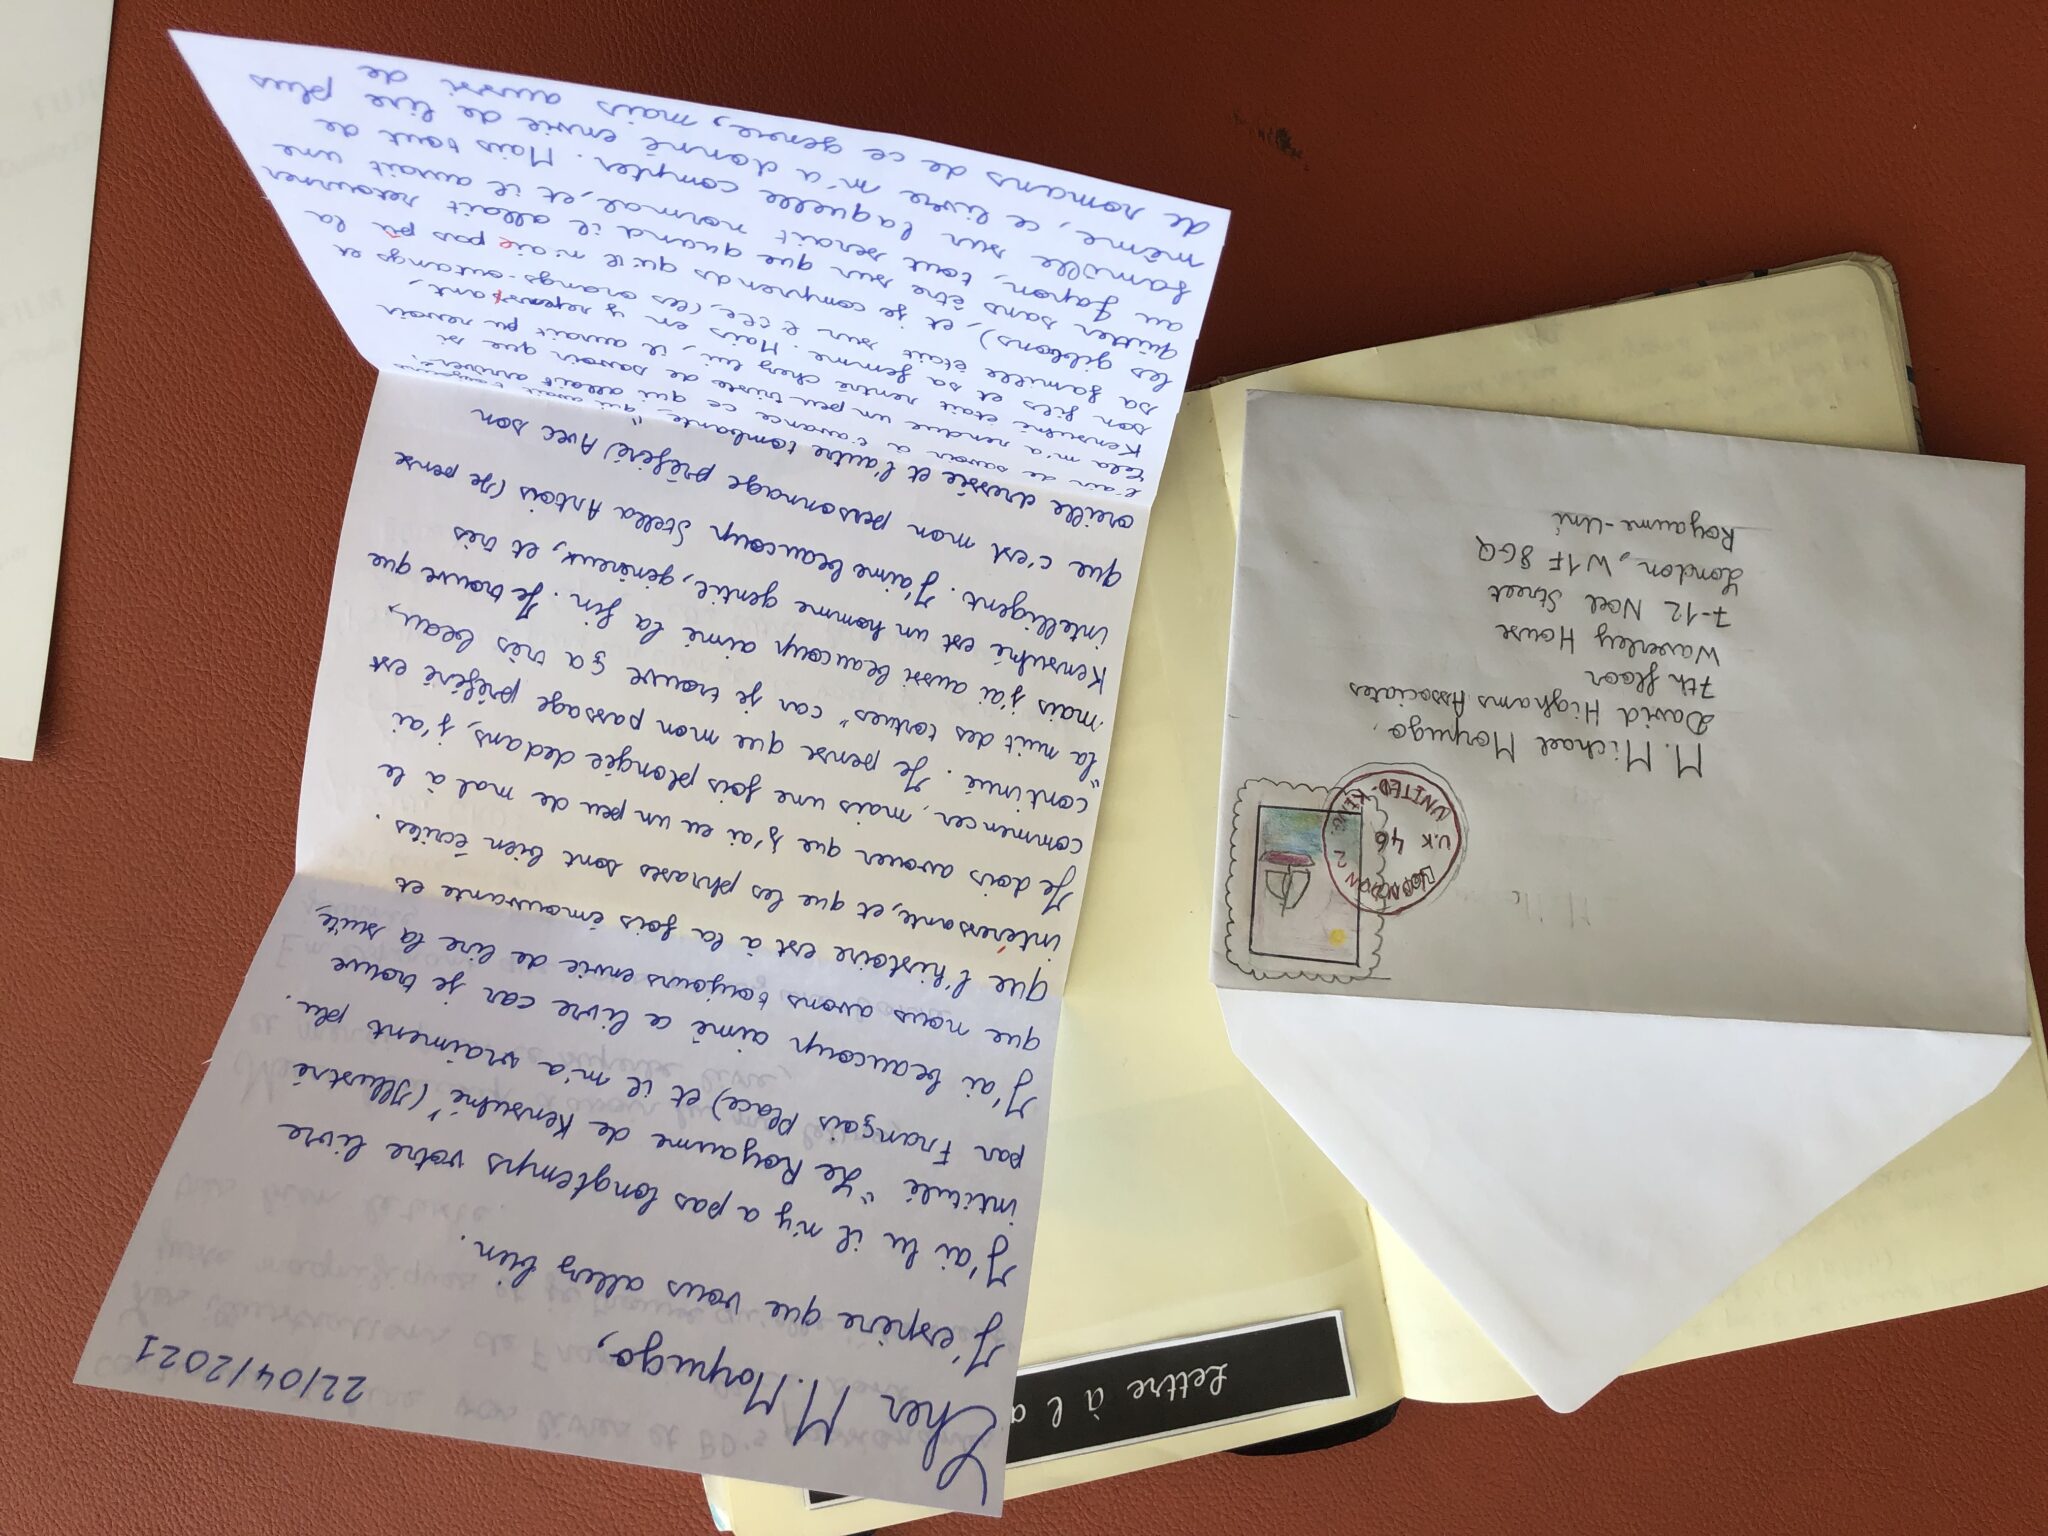 22/04/2021
Cher M. Morpugo,
J'espère que vous allez bien.
J'ai lu il n'y a pas longtemps votre livre
intitulé "Le Royaume de Kensuké" (Illustré
par François Place) et il m'a vraiment plu.
J'ai beaucoup aimé ce livre car je trouve
que nous avons toujours envie de lire la suite,
que l'histoire est à la fois émouvante et
intéressante, et que les phrases sont bien écrites.
Je dois avouer que j'ai eu un peu de mal à le
commencer, mais une fois plongée dedans, j'ai
continué. Je pense que mon passage préféré est
"la nuit des tortues" car je trouve ça très beau,
mais j'ai aussi beaucoup aimé la fin. Je trouve que
Kensuké est un homme gentil, généreux, et très
intelligent. J'aime beaucoup Stella Artois (Je pense
que c'est mon personnage préféré) Avec son
oreille dressée et l'autre tombante, qui avait toujours
l'air de savoir à l'avance ce qui allait arriver.
Cela m'a rendue un peu triste de savoir que si
Kensuké était rentré chez lui, il aurait pu revoir
son fils et sa femme. Mais en y repensant,
sa famille était sur l'île, (les orangs-outangs et
les gibbons), et je comprends qu'il n'aie pas pû la
quitter sans être sur que quand il allait retourner
au Japon, tout serait normal, et il aurait une
famille sur laquelle compter. Mais tout de
même, ce livre m'a donné envie de lire plus
de romans de ce genre, mais aussi de
M. Michael Morpugo,
David Highams Associates
7th floor
Waverley House
7-12 Noel Street
London, W1F 8GQ
Royaume-Uni
LONDON 2
U.K 46
UNITED-KING.
Lettre à l a